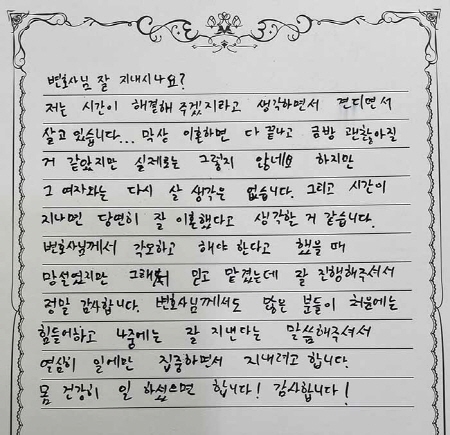 변호사님 잘 지내시나요?
저는 시간이 해결해 주겠지라고 생각하면서 견디면서
살고 있습니다... 막상 이혼하면 다 끝나고 금방 괜찮아질
거 같았지만 실제로는 그렇지 않네요 하지만
그 여자와는 다시 살 생각은 없습니다. 그리고 시간이
지나면 당연히 잘 이혼했다고 생각할 거 같습니다.
변호사님께서 각오하고 해야 한다고 했을 때
망설였지만 그래도 믿고 맡겼는데 잘 진행해주셔서
정말 감사합니다. 변호사님께서도 많은 분들이 처음에는
힘들어하고 나중에는 잘 지낸다는 말씀해주셔서
열심히 일에만 집중하면서 지내려고 합니다.
몸 건강히 일 하셨으면 합니다! 감사합니다!